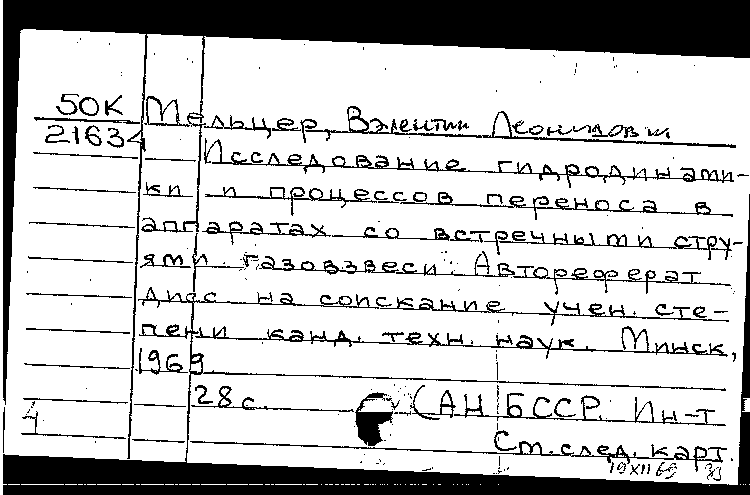 50К Мельцер, Валентин Леонидович
21634 Исследование гидродинами-
ки и процессов переноса в
аппаратах со встречными стру-
ями газовзвеси. Автореферат
дисс. на соискание учен. сте-
пени канд. техн. наук. Минск,
1969.
28 с. (АН БССР. Ин-т
4 См. след. карт.
19 XII 69